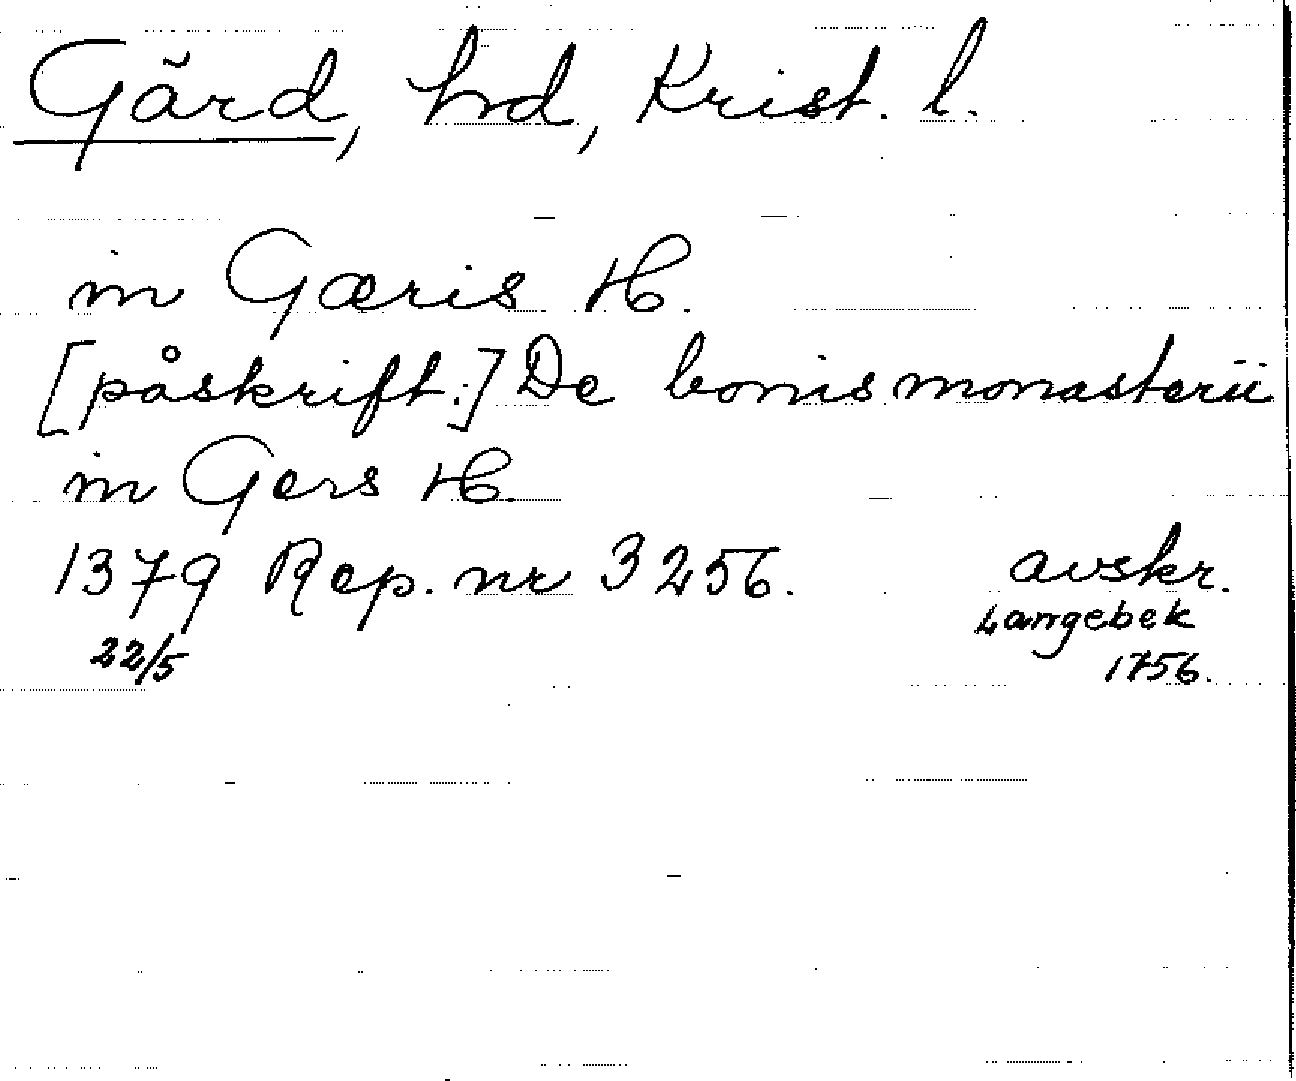 Gärd, hd, Krist. l.
in Gæris H.
[påskrift:] De bonis monasterii
in Gers H.
1379 Rep. nr 3256. avskr.
22/5 Langebek
1756.